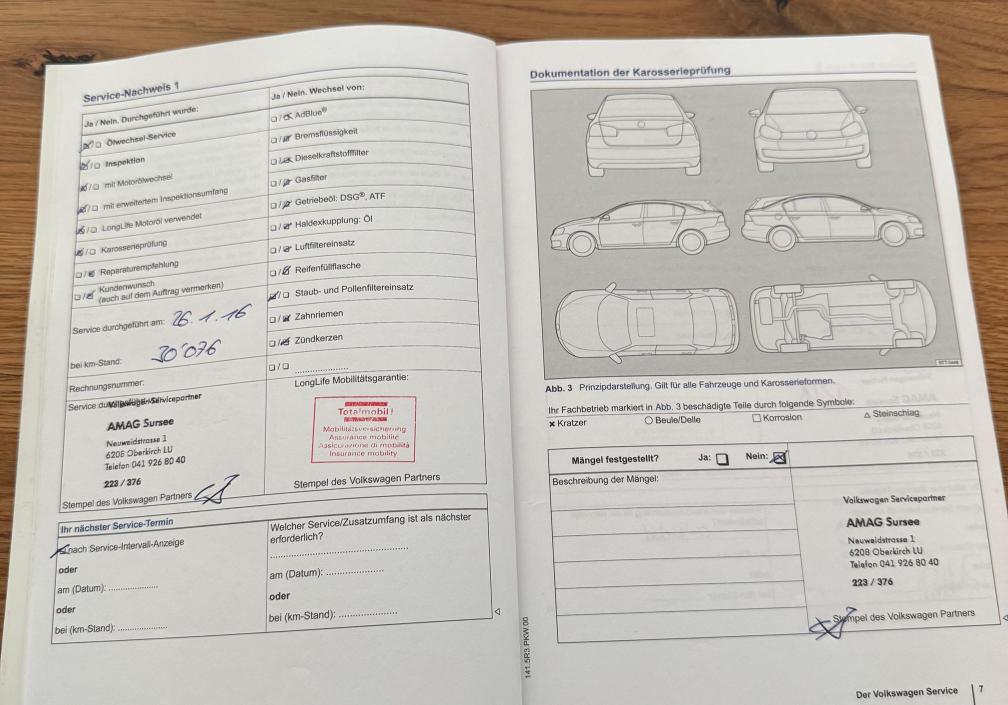 Service-Nachweis 1
Ja / Nein. Durchgeführt wurde:
☒/☐ Ölwechsel-Service
☒/☐ Inspektion
☒/☐ mit Motorölwechsel
☒/☐ mit erweitertem Inspektionsumfang
☒/☐ LongLife Motoröl verwendet
☒/☐ Karosserieprüfung
☐/☒ Reparaturempfehlung
☐/☒ Kundenwunsch
(auch auf dem Auftrag vermerken)
Service durchgeführt am: 26.1.16
bei km-Stand: 30'076
Rechnungsnummer:
Service
Volkswagen Servicepartner
AMAG Sursee
Neuweidstrasse 1
6208 Oberkirch LU
Telefon 041 926 80 40
223 / 376
Stempel des Volkswagen Partners
Ja / Nein. Wechsel von:
☐/☒ AdBlue®
☐/☒ Bremsflüssigkeit
☐/☒ Dieselkraftstofffilter
☐/☒ Gasfilter
☐/☒ Getriebeöl: DSG®, ATF
☐/☒ Haldexkupplung: Öl
☐/☒ Luftfiltereinsatz
☐/☒ Reifenfüllflasche
☒/☐ Staub- und Pollenfiltereinsatz
☐/☒ Zahnriemen
☐/☒ Zündkerzen
☐/☐ ....................
LongLife Mobilitätsgarantie:
Totalmobil!
Mobilitätsversicherung
Assurance mobilité
Assicurazione di mobilità
Insurance mobility
Stempel des Volkswagen Partners
Ihr nächster Service-Termin
☒ nach Service-Intervall-Anzeige
oder
am (Datum): ................
oder
bei (km-Stand): ................
Welcher Service/Zusatzumfang ist als nächster
erforderlich?
........................................
am (Datum): ................
oder
bei (km-Stand): ................
Dokumentation der Karosserieprüfung
Abb. 3 Prinzipdarstellung. Gilt für alle Fahrzeuge und Karosserieformen.
Ihr Fachbetrieb markiert in Abb. 3 beschädigte Teile durch folgende Symbole:
× Kratzer ○ Beule/Delle □ Korrosion △ Steinschlag
Mängel festgestellt? Ja: ☐ Nein: ☒
Beschreibung der Mängel:
Volkswagen Servicepartner
AMAG Sursee
Neuweidstrasse 1
6208 Oberkirch LU
Telefon 041 926 80 40
223 / 376
Stempel des Volkswagen Partners
141.5R3.PKW.00
Der Volkswagen Service | 7